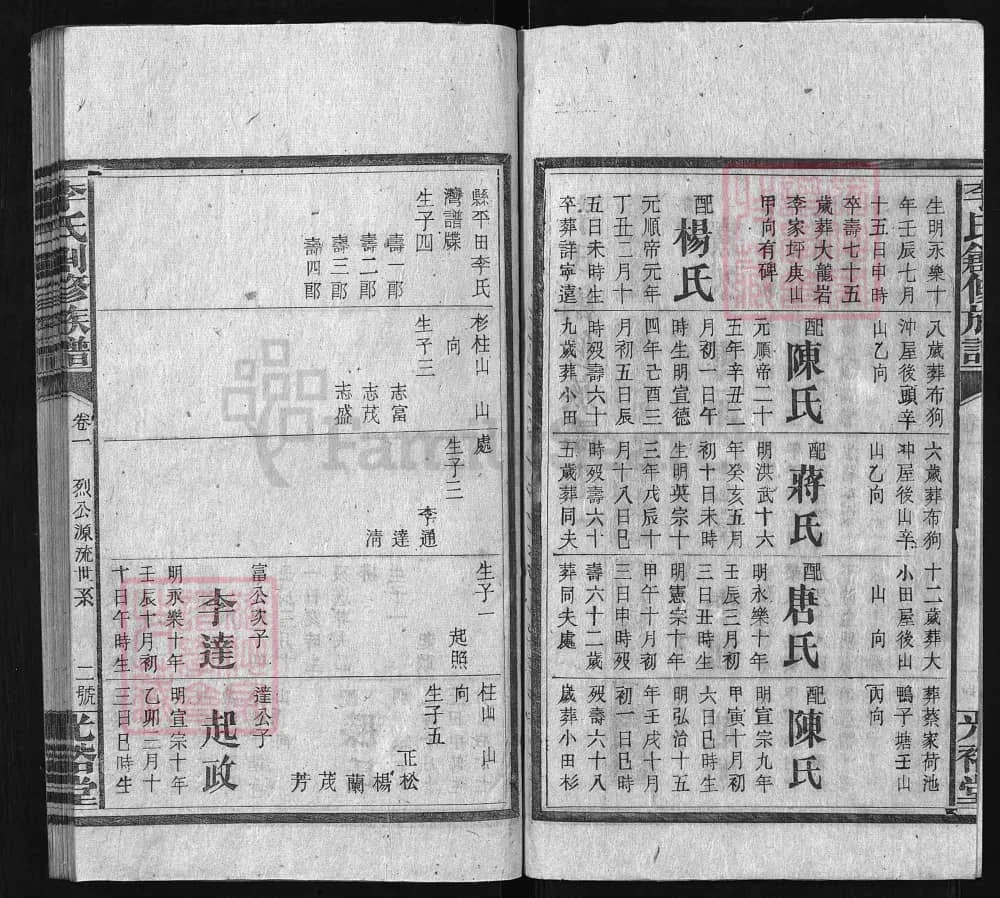 李氏創修族譜
光裕堂
生明永樂十
年壬辰七月
十五日申時
卒壽七十五
歲葬大龍岩
李家坪庚山
甲向有碑
配楊氏
元順帝元年
丁丑二月十
五日未時生
卒葬詳寧遠
八歲葬布狗
沖屋後頭辛
山乙向
配陳氏
元順帝二十
五年辛丑二
月初一日午
時生明宣德
四年己酉三
月初五日辰
時歿壽六十
九歲葬小田
六歲葬布狗
冲屋後山辛
山乙向
配蔣氏
明洪武十六
年癸亥五月
初十日未時
生明英宗十
三年戊辰十
月十八日巳
時歿壽六十
五歲葬同夫
十二歲葬大
小田屋後山
山向
配唐氏
明永樂十年
壬辰三月初
三日丑時生
明憲宗十年
甲午十月初
三日申時歿
壽六十二歲
葬同夫處
葬蔡家荷池
鴨子塘壬山
丙向
配陳氏
明宣宗九年
甲寅十月初
六日巳時生
明弘治十五
年壬戌十月
初一日巳時
歿壽六十八
歲葬小田杉
縣平田李氏
灣譜牒
生子四
壽一郎
壽二郎
壽三郎
壽四郎
杉柱山山
向
生子三
志富
志茂
志盛
處
生子三
李通
達
清
生子一
起照
富公次子
李達
明永樂十年
壬辰十月初
十日午時生
柱山山
向
生子五
正松
楊
蘭
茂
芳
達公子
起政
明宣宗十年
乙卯三月十
三日巳時生
李氏創修族譜
卷一
烈公源流世系
二號
光裕堂